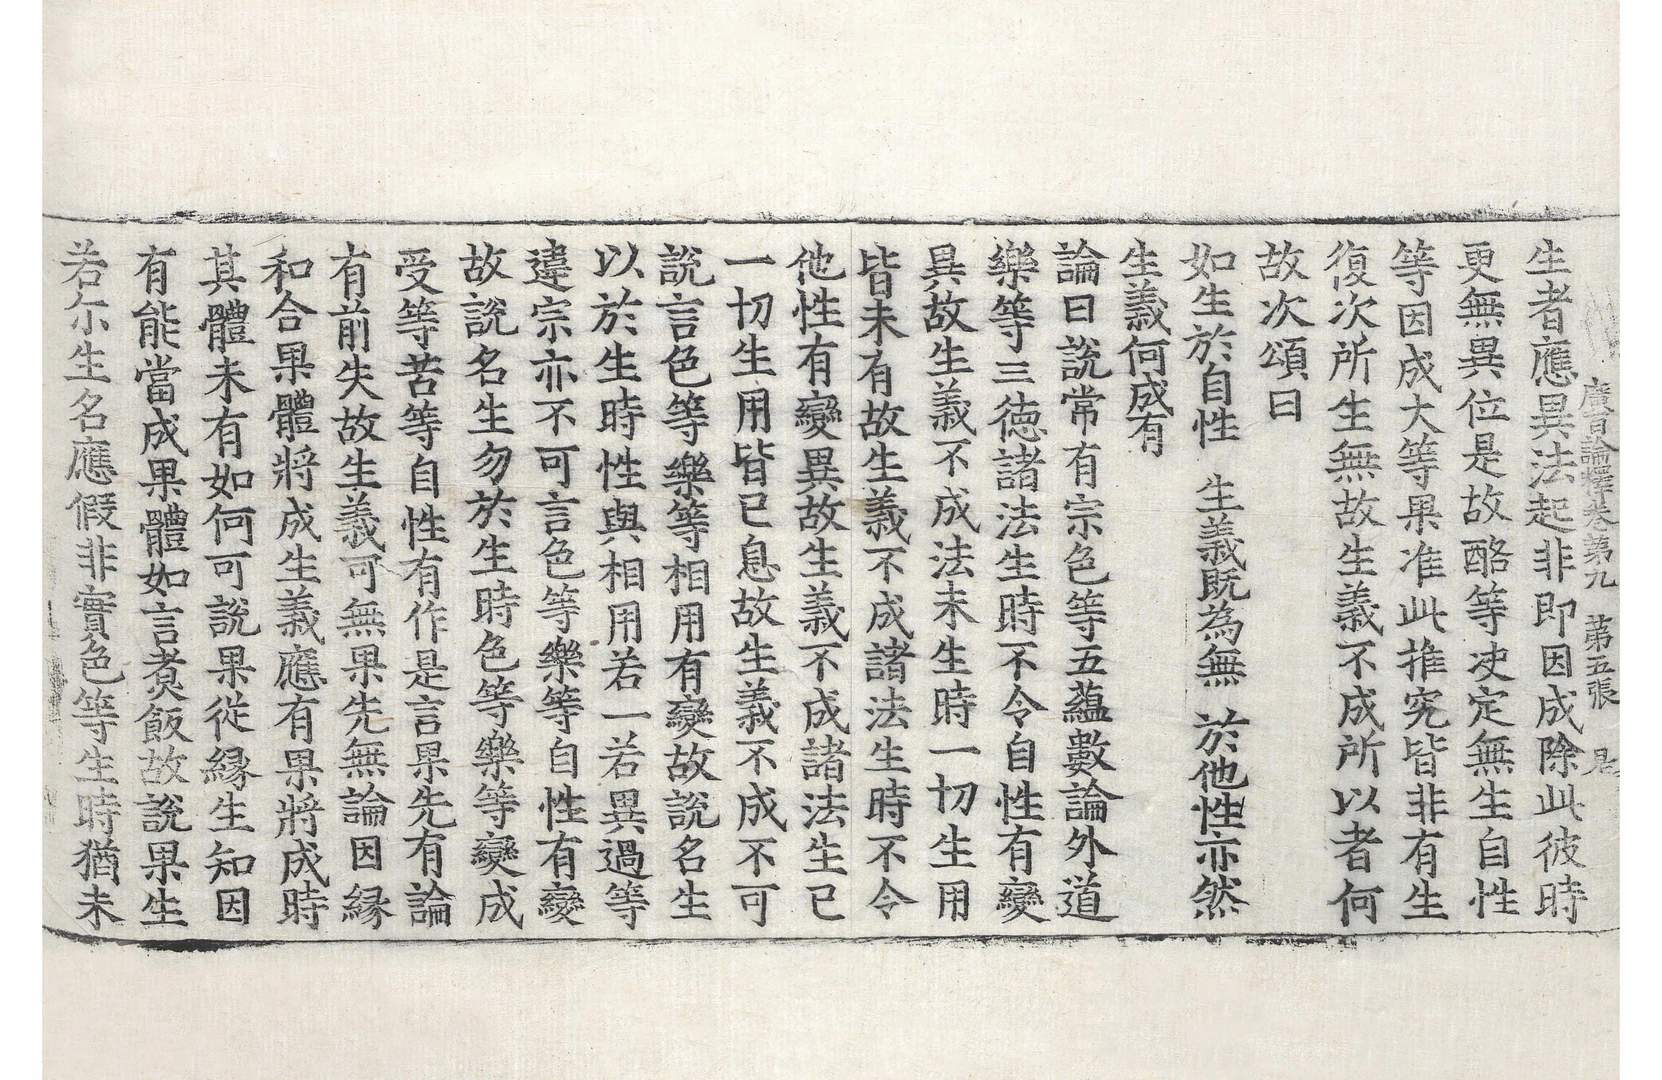 廣百論釋卷第九 第五張 是
生者應異法起非即因成除此彼時
更無異位是故酪等決定無生自性
等因成大等果准此推究皆非有生
復次所生無故生義不成所以者何
故次頌曰
如生於自性 生義既為無 於他性亦然
生義何成有
論曰說常有宗色等五蘊數論外道
樂等三德諸法生時不令自性有變
異故生義不成法未生時一切生用
皆未有故生義不成諸法生時不令
他性有變異故生義不成諸法生已
一切生用皆已息故生義不成不可
說言色等樂等相用有變故說名生
以於生時性與相用若一若異過等
違宗亦不可言色等樂等自性有變
故說名生勿於生時色等樂等變成
受等苦等自性有作是言果先有論
有前失故生義可無果先無論因緣
和合果體將成生義應有果將成時
其體未有如何可說果從緣生知因
有能當成果體如言煑飯故說果生
若尒生名應假非實色等生時猶未